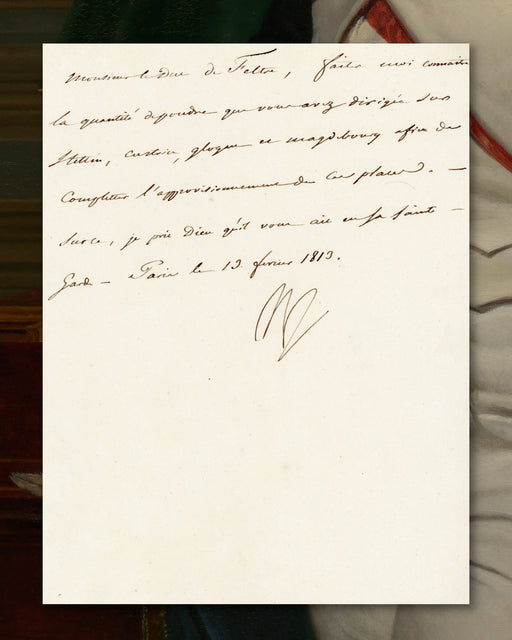 Monsieur le Duc de Feltre, faites moi connaitre
la quantité de poudre que vous avez dirigée sur
Stettin, custrin, glogau et magdebourg afin de
Completter l'approvisionnement de ces places. —
Sur ce, je prie Dieu qu'il vous ait en sa sainte —
Garde — Paris le 13 fevrier 1813.